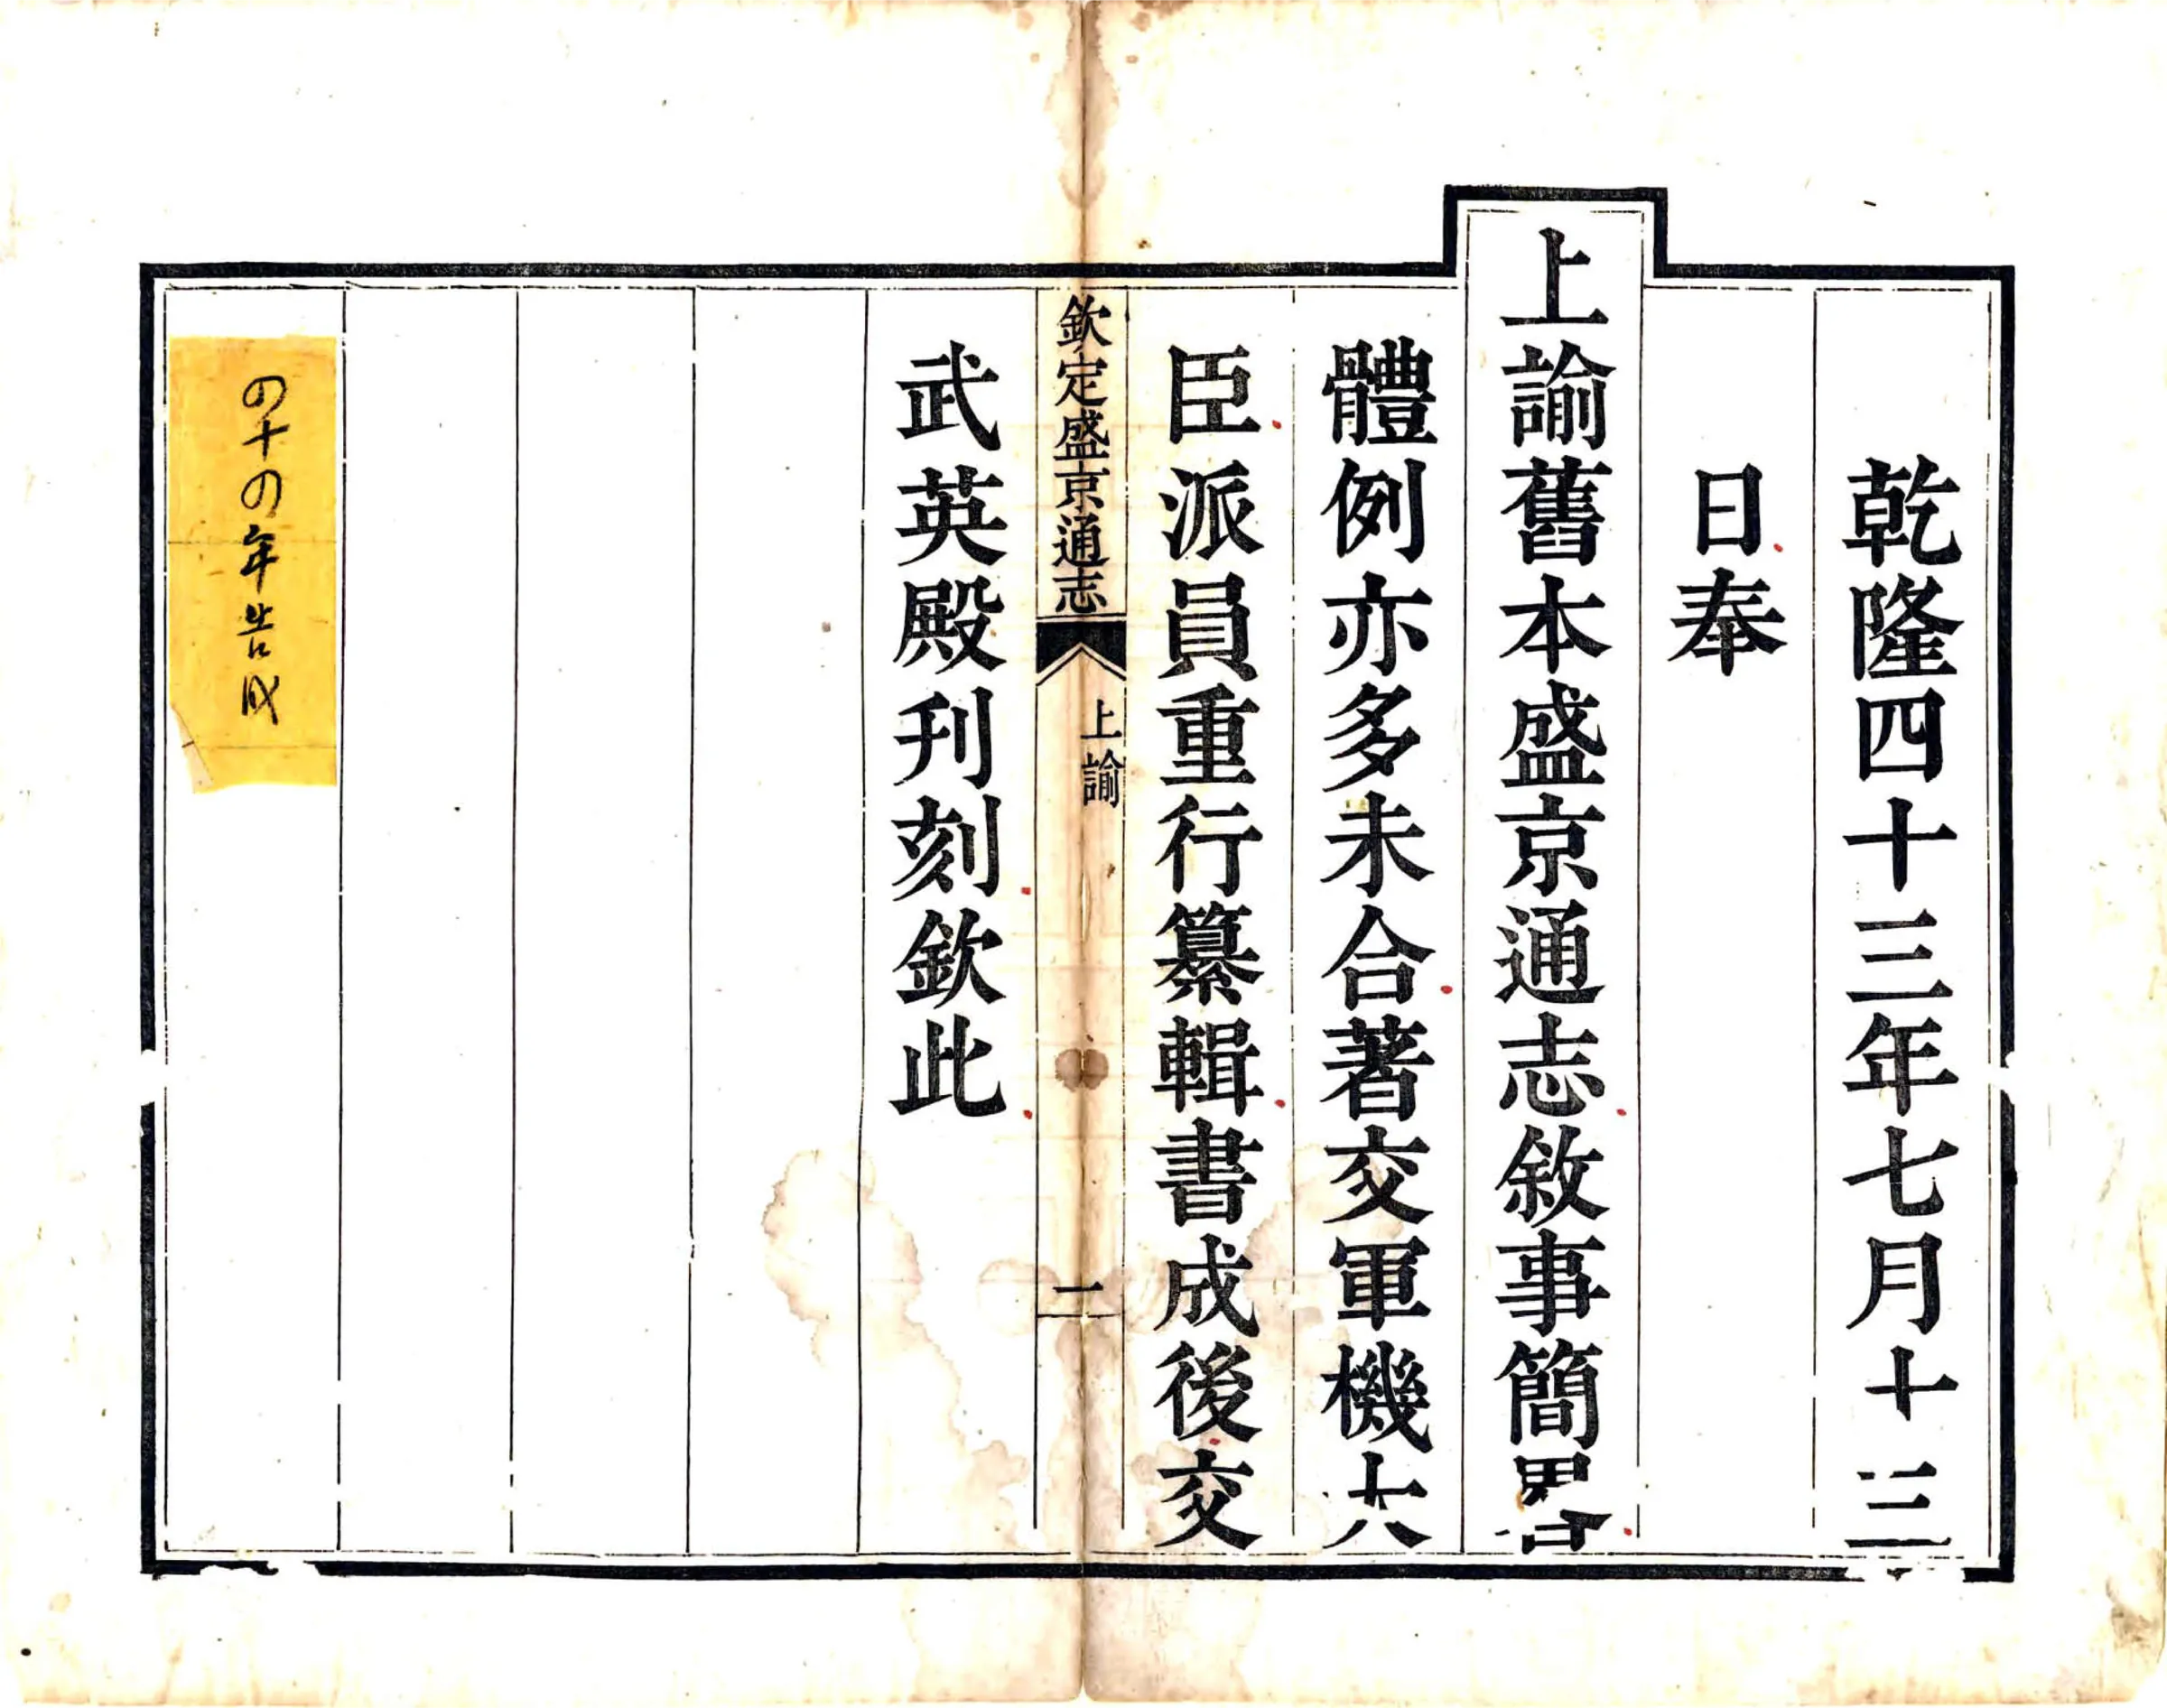 乾隆四十三年七月十三
日奉
上諭舊本盛京通志敘事簡畧
體例亦多未合著交軍機大
臣派員重行纂輯書成後交
欽定盛京通志
上諭
一
武英殿刊刻欽此
四十四年告成